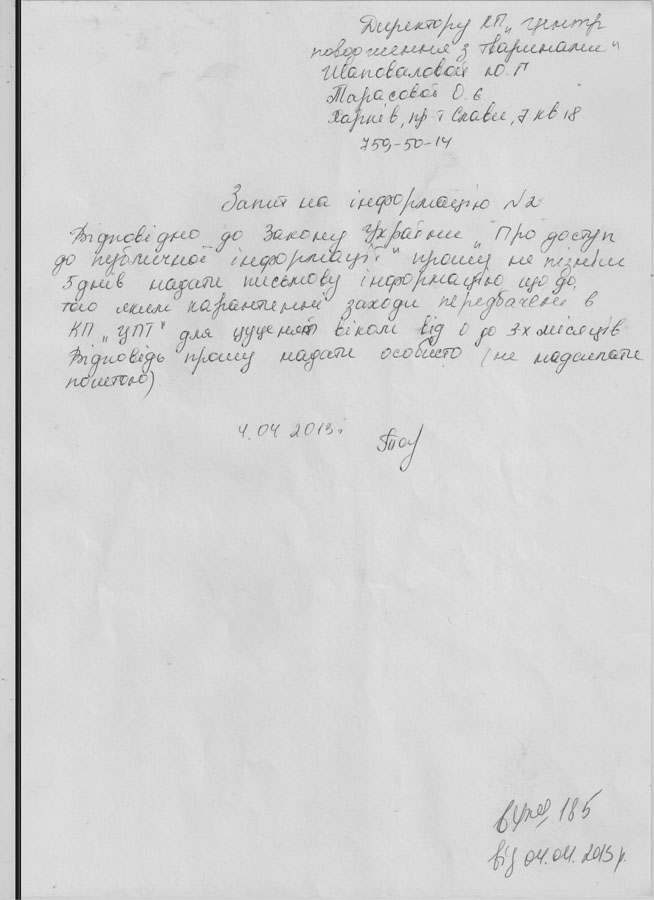 Директору КП „Центр
поводження з тваринами"
Шаповаловой Ю.Г
Тарасовой О.Є
Харків, пр-т Слави, 7 кв 18
759-50-14
Запит на інформацію N2
Відповідно до Закону України „Про доступ
до публичноі інформації" прошу не пізніш
5 днів надати письмову інформацію що до
того які карантенні заходи передбачені в
КП „ЦПТ" для цуценят віком від 0 до 3х місяців
Відповідь прошу надати особисто (не надсилати
поштою).
4.04 2013г
185
від 04.04.2013 р.